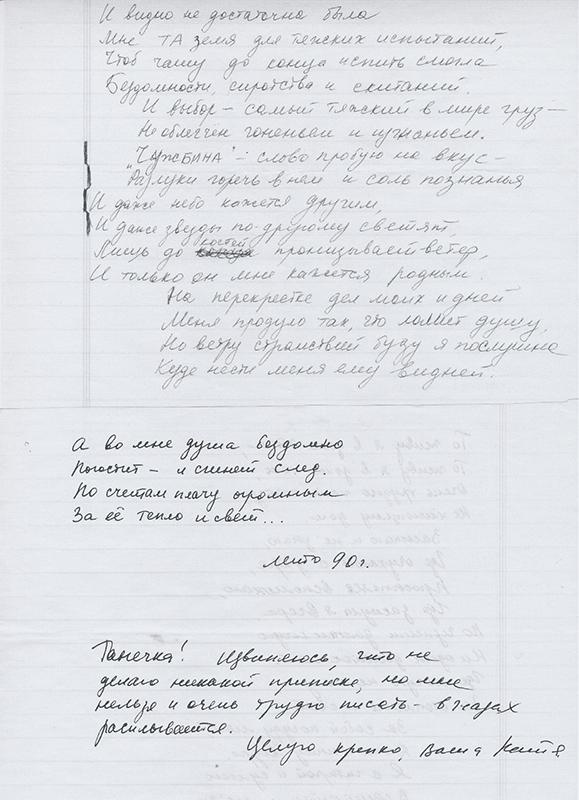 И видно не достаточно было
Мне ТА земля для тяжских испытаний,
Чтоб чашу до конца испить смогла
Бездомности, сиротства и скитаний.
И выбор – самый тяжский в мире груз –
Не облегчен гоненьем и изгнаньем.
„Чужбина" – слово пробую на вкус –
Разлуки горечь в нем и соль познанья
И даже небо кажется другим,
И даже звезды по-другому светят,
Лишь до костей пронизывает ветер,
И только он мне кажется родным.
На перекрестке дел моих и дней
Меня продуло так, что ломит душу,
Но ветру странствий буду я послушна
Куда нести меня ему видней.
А во мне душа бездомно
Погостит – и сгинет след.
По счетам плачу огромным
За её тепло и свет...
лето 90 г.
Танечка! Извиняюсь, что не
делаю никакой приписки, но мне
нельзя и очень трудно писать – в глазах
расплывается.
Целую крепко, Ваша Катя.